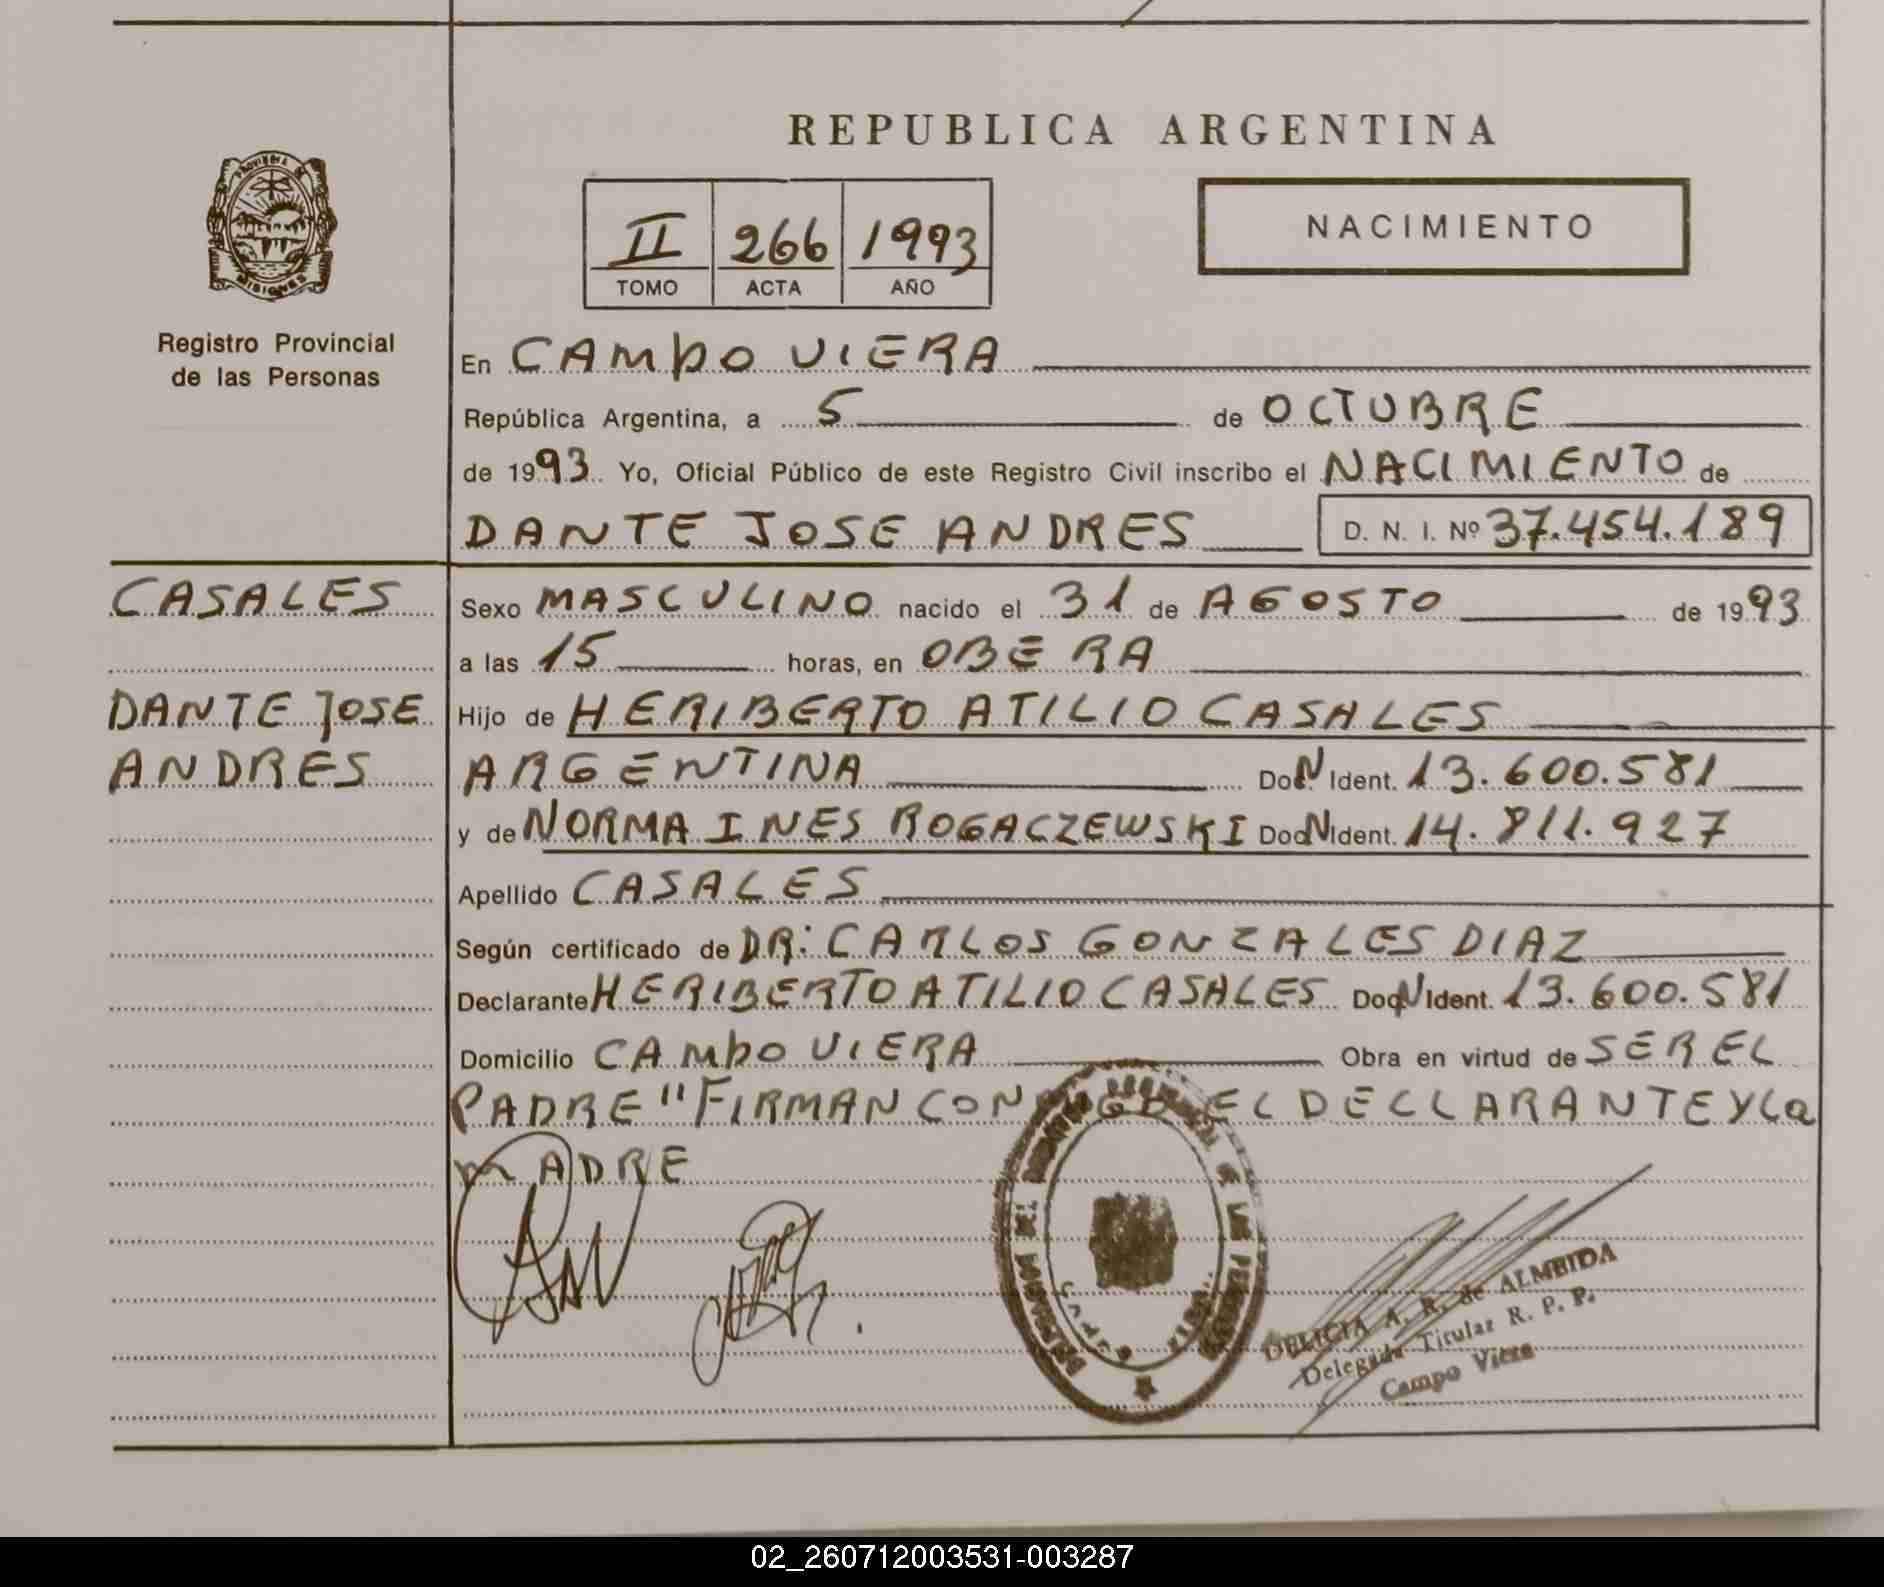 REPUBLICA ARGENTINA
PROVINCIA DE MISIONES
II 266 1993
TOMO ACTA AÑO
NACIMIENTO
Registro Provincial
de las Personas
En CAMPO VIERA
República Argentina, a 5 de OCTUBRE
de 1993 Yo, Oficial Público de este Registro Civil inscribo el NACIMIENTO de
DANTE JOSE ANDRES D. N. I. Nº 37.454.189
CASALES
DANTE JOSE
ANDRES
Sexo MASCULINO nacido el 31 de AGOSTO de 1993
a las 15 horas, en OBERA
Hijo de HERIBERTO ATILIO CASALES
ARGENTINA Doc. N Ident. 13.600.581
y de NORMA INES ROGACZEWSKI Doc N Ident. 14.811.927
Apellido CASALES
Según certificado de DR: CARLOS GONZALES DIAZ
Declarante HERIBERTO ATILIO CASALES Doc N Ident. 13.600.581
Domicilio CAMPO VIERA Obra en virtud de SER EL
PADRE" FIRMAN CONMIGO EL DECLARANTE Y La
MADRE
DELICIA A. R. de ALMEIDA
Delegada Titular R. P. P.
Campo Viera
02_260712003531-003287